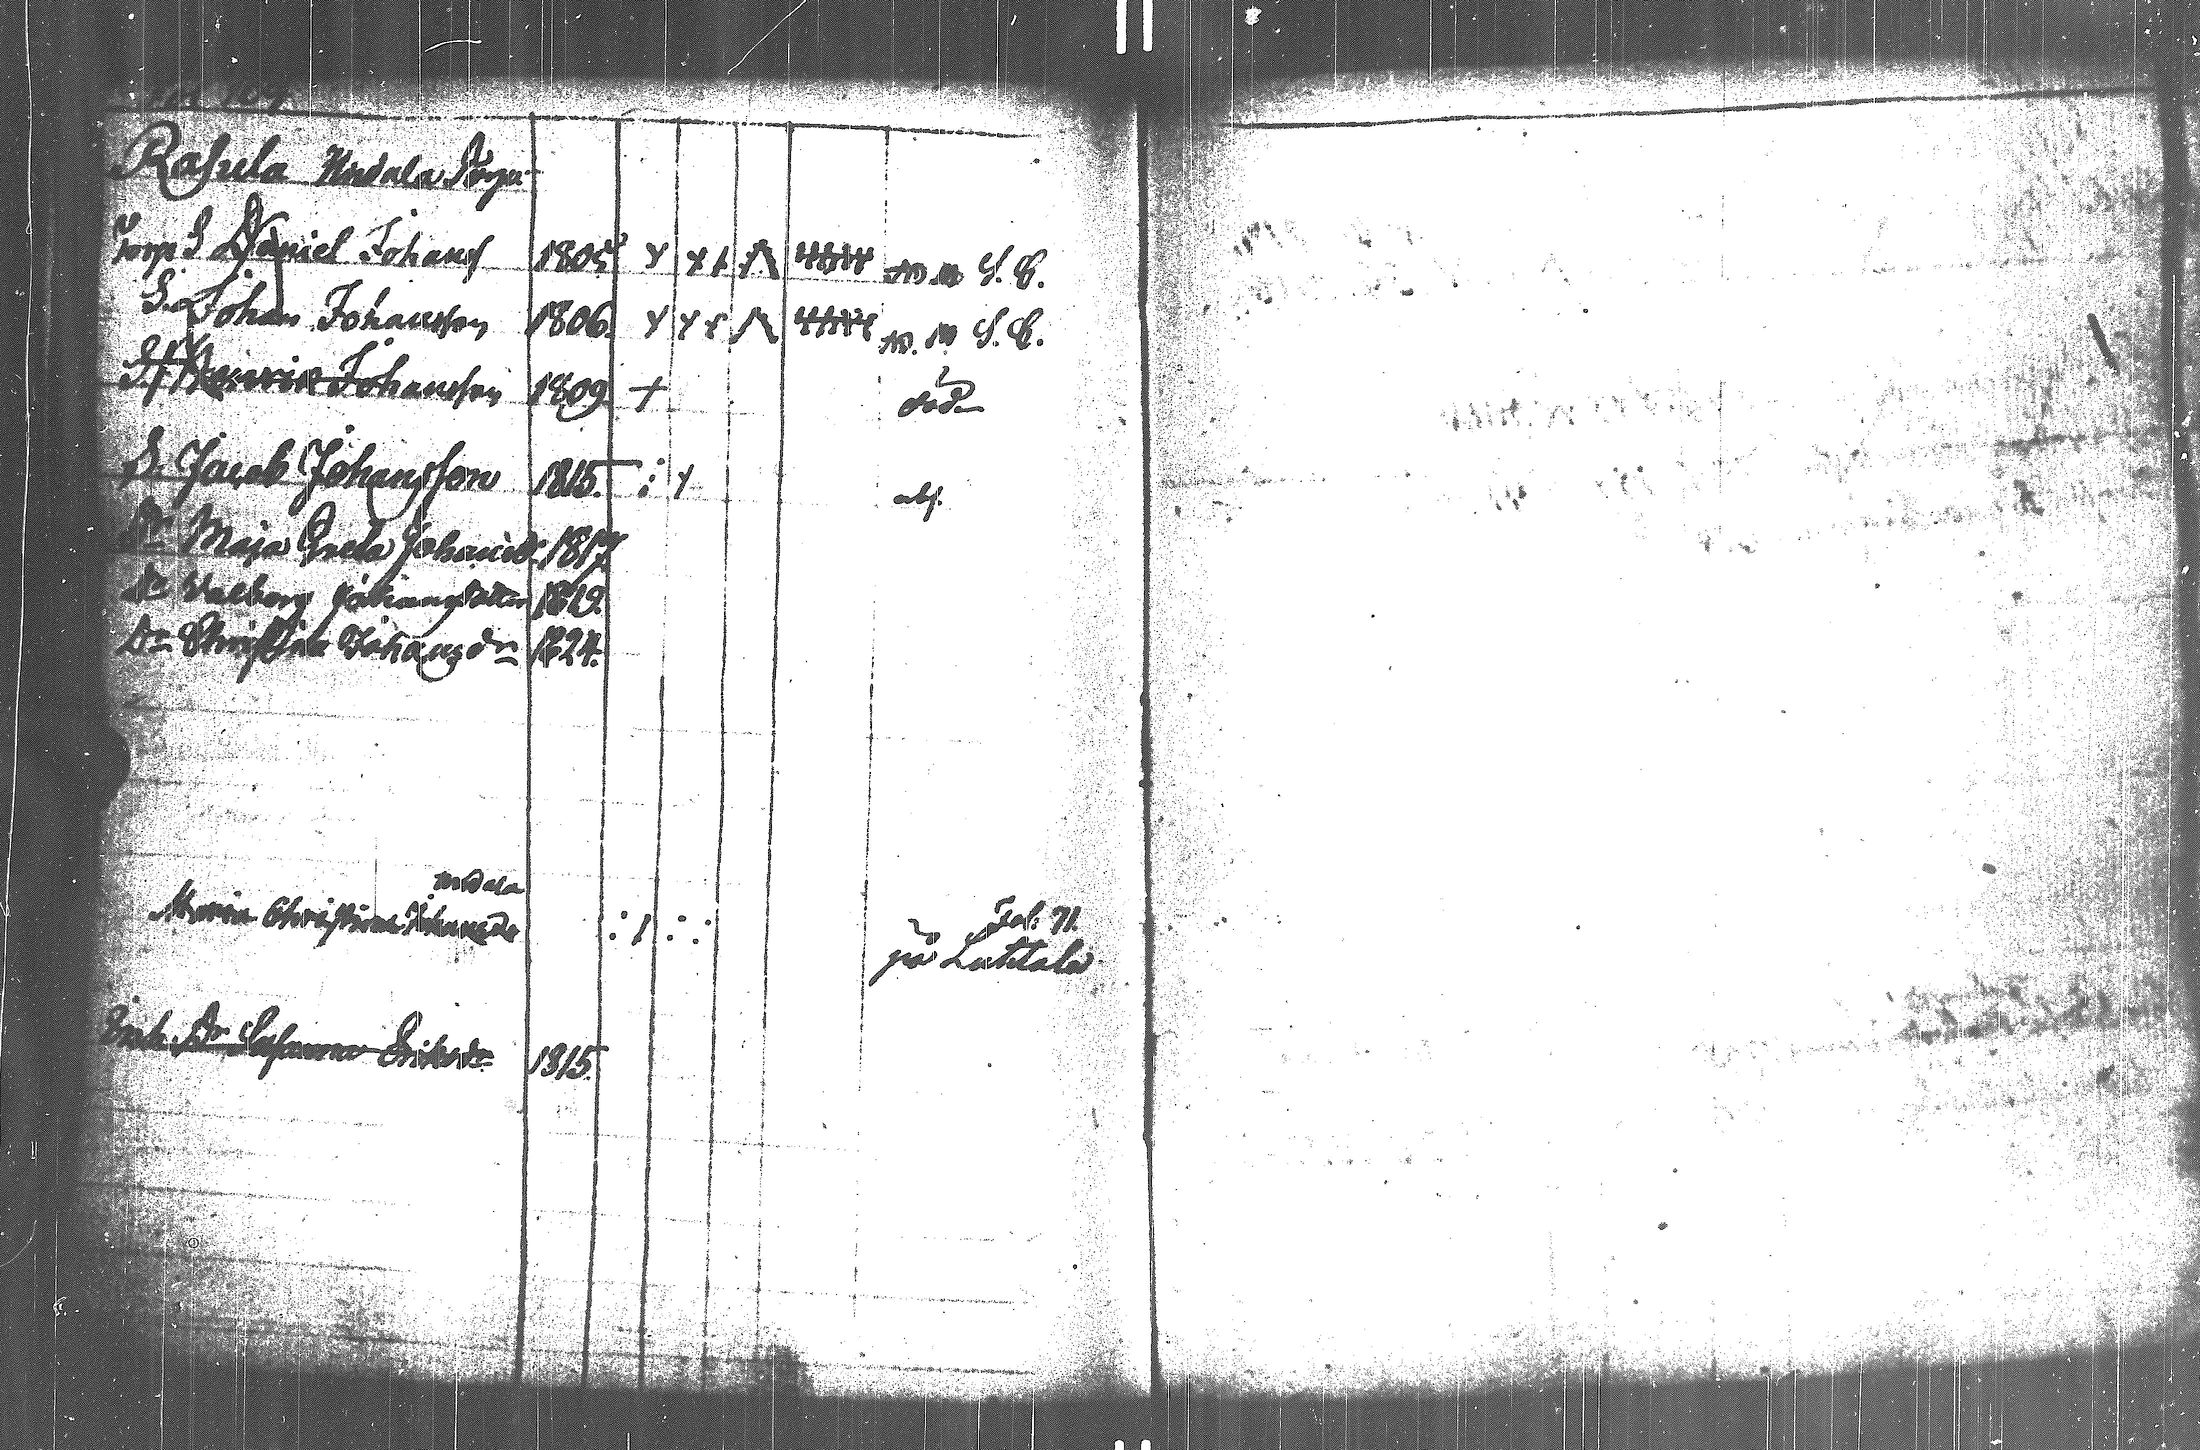 Rasula Hindala Torp
Torp S Daniel Johans 1805 S. C.
S. Johan Johansson 1806. S. C.
S. Henric Johansson 1809 död
S. Jacob Johansson 1815. abs.
Dr Maja Greta Johansdr 1817
Dr Valborg Johansdotter 1819.
Dr Christina Johansdr 1824.
Maria Christina Johansdr Fol: 71.
på Luhtala
Enk. Dr Susanna Eriksdr 1815.